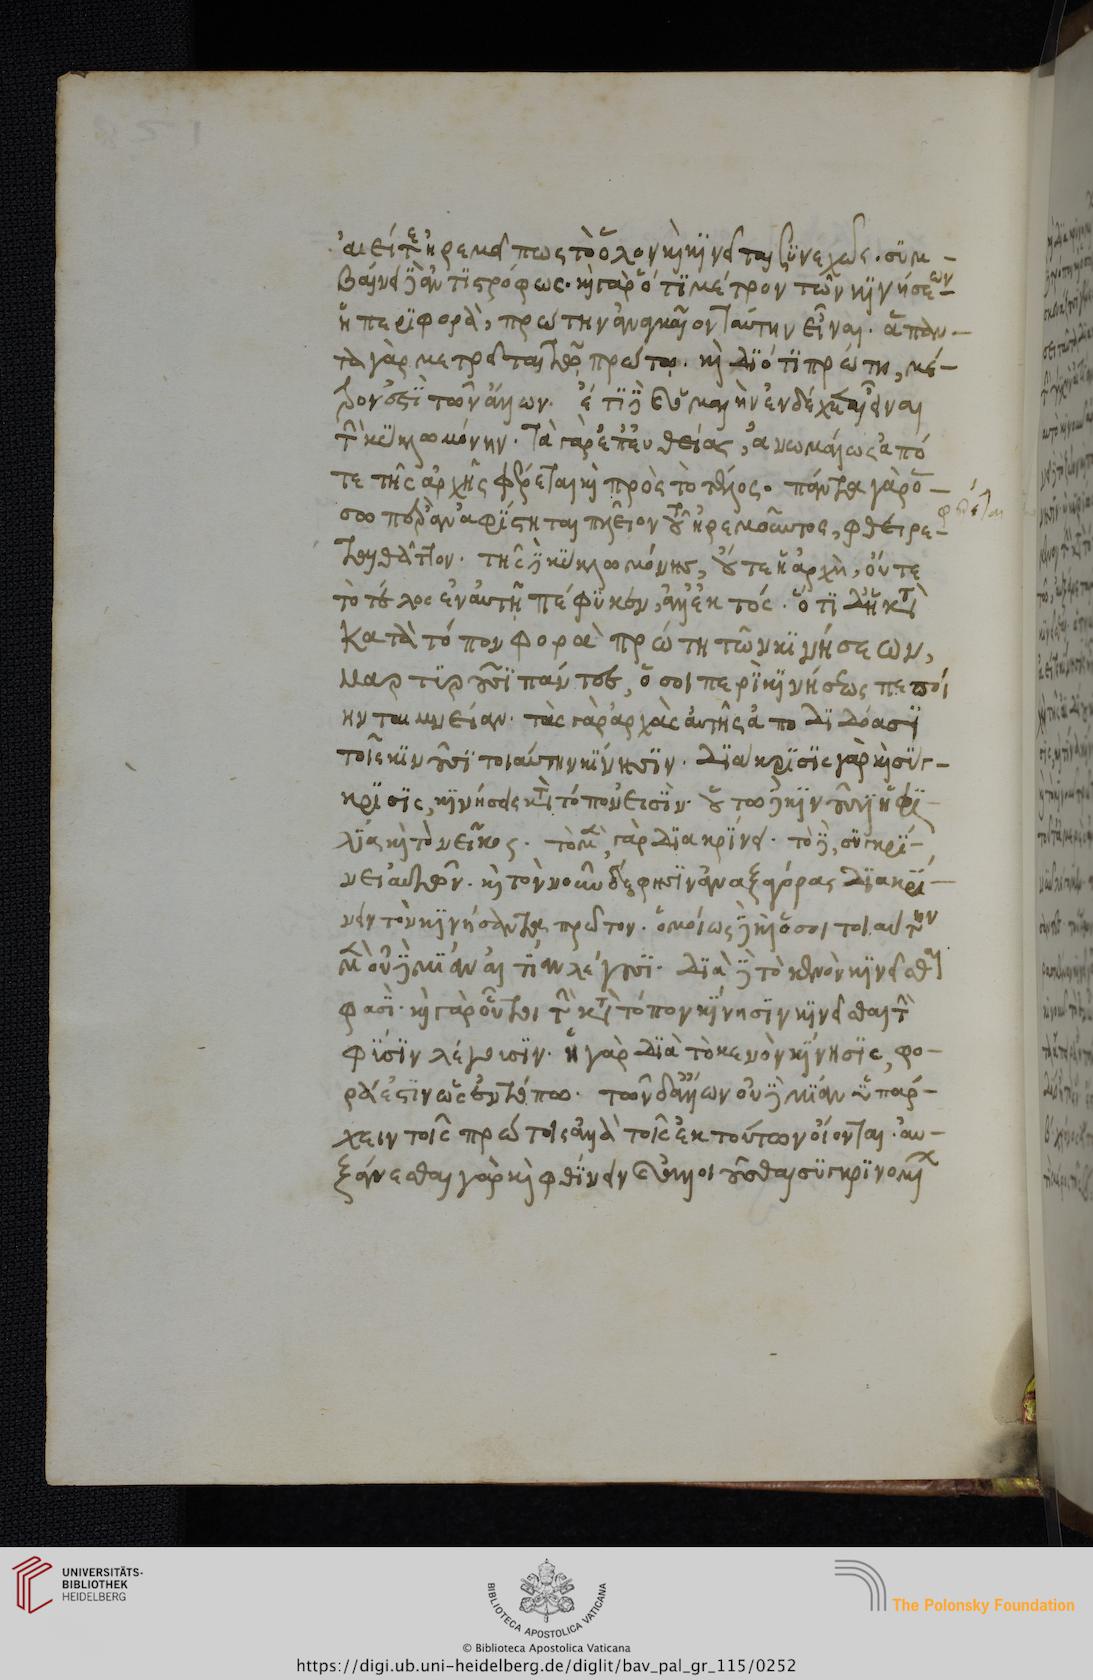 ἀεί τε ἠρεμεῖ πως τὸ ὅλον καὶ κινεῖται συνεχῶς. συμ-
βαίνει δὲ ἀντιστρόφως. καὶ γὰρ ὅτι μέτρον τῶν κινήσεων
ἡ περιφορά, πρώτην ἀναγκαῖον ταύτην εἶναι. ἅπαν-
τα γὰρ μετρεῖται τῷ πρώτῳ. καὶ διότι πρώτη, μέ-
τρον ἐστὶ τῶν ἄλλων. ἔτι δὲ καὶ ἐνδέχεται εἶναι
τὴν κύκλῳ μόνην. τὰ γὰρ ἐπ' εὐθείας, ἀνωμάλως ἀπό
τε τῆς ἀρχῆς φέρεται καὶ πρὸς τὸ τέλος. πάντα γὰρ ὅ-
σῳ περ ἂν ἀφίστηται πλεῖον τοῦ ἠρεμοῦντος, φθείρε-
ται θᾶττον. τῆς δὲ κύκλῳ μόνης, οὔτε ἡ ἀρχὴ, οὔτε
τὸ τέλος ἐν αὐτῇ πέφυκεν, ἀλλ' ἐκτός. ὅτι δὴ ἡ
κατὰ τόπον φορὰ πρώτη τῶν κινήσεων,
μαρτυροῦσι πάντες, ὅσοι περὶ κινήσεως πεποί
ηνται μνείαν. τὰς γὰρ ἀρχὰς αὐτῆς ἀποδιδόασι
τοῖς κινοῦσι τοιαύτην κίνησιν. διάκρισις γὰρ καὶ σύγ-
κρισις, κινήσεις κατὰ τόπον εἰσίν. οὕτω δὲ κινοῦσιν ἡ φι-
λία καὶ τὸ νεῖκος. τὸ μὲν γὰρ διακρίνει. τὸ δὲ, συγκρί-
νει αὐτῶν. καὶ τὸν νοῦν δέ φησιν ἀναξαγόρας διακρί-
νειν τὸν κινήσαντα πρῶτον. ὁμοίως δὲ καὶ ὅσοι τοιαύτην
μὲν οὐδεμίαν αἰτίαν λέγουσι. διὰ δὲ τὸ κενὸν κινεῖσθαί
φασι. καὶ γὰρ οὗτοι τὴν κατὰ τόπον κίνησιν κινεῖσθαι τὴν
φύσιν λέγουσιν. ἡ γὰρ διὰ τὸ κενὸν κίνησις, φο-
ρά ἐστιν ὡς ἐν τόπῳ. τῶν δ' ἄλλων οὐδεμίαν ὑπάρ-
χειν τοῖς πρώτοις ἀλλὰ τοῖς ἐκ τούτων οἴονται. αὐ-
ξάνεσθαι γὰρ καὶ φθίνειν καὶ ἀλλοιοῦσθαι συγκρινομένων
φέρεται
UNIVERSITÄTS-
BIBLIOTHEK
HEIDELBERG
BIBLIOTECA APOSTOLICA VATICANA
The Polonsky Foundation
© Biblioteca Apostolica Vaticana
https://digi.ub.uni-heidelberg.de/diglit/bav_pal_gr_115/0252